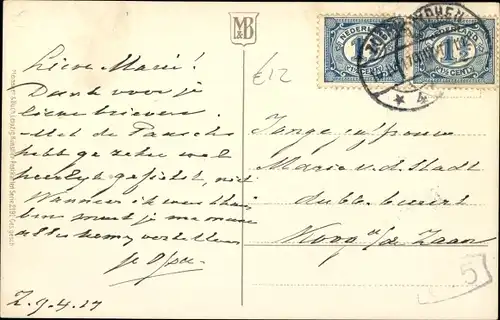 MB
&
€12
NEDERLAND
NEDERLAND
1½
1½
1½ CENT
1½ CENT
4
Lieve Marie!
Dank voor je
lieve brieven.
Met de Paasch
hebt ge zeker wel
heerlijk gefietst, niet
Wanneer ik weer thuis
ben moet je me maar
alles komen vertellen
je Opa
Z. 9.4.17
Jonge Juffrouw
Marie v.d. Stadt
dubb. buurt
Koog a/d Zaan
5